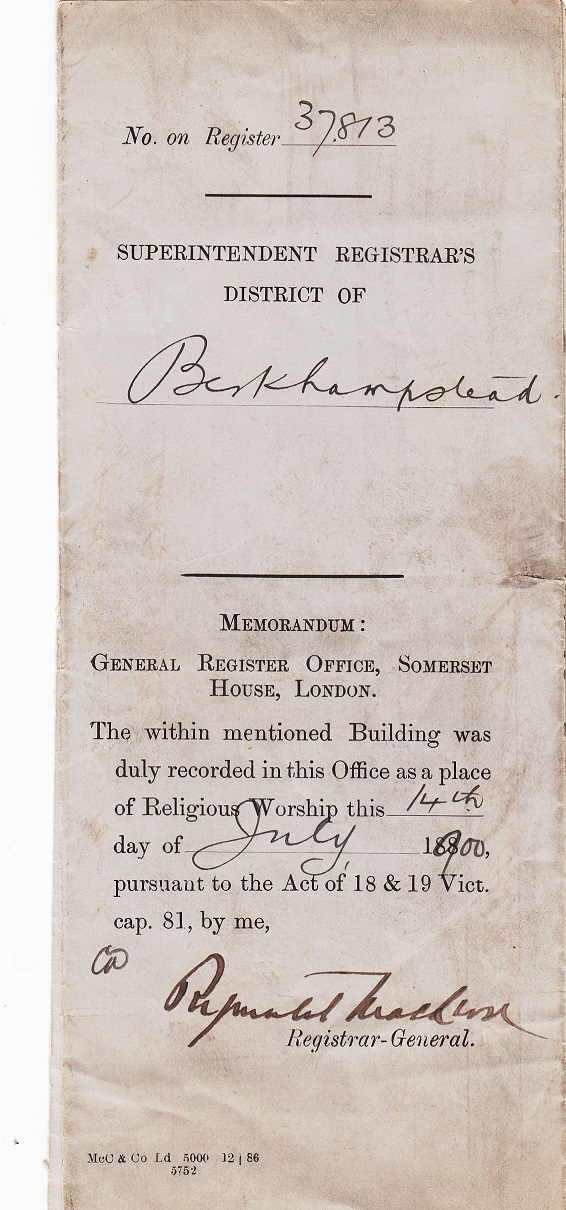 No. on Register 37,813
SUPERINTENDENT REGISTRAR'S
DISTRICT OF
Berkhampstead.
MEMORANDUM:
GENERAL REGISTER OFFICE, SOMERSET
HOUSE, LONDON.
The within mentioned Building was
duly recorded in this Office as a place
of Religious Worship this 14th
day of July 1900,
pursuant to the Act of 18 & 19 Vict.
cap. 81, by me,
Reginald
Registrar-General.
McC & Co Ld 5000 12 | 86
5752